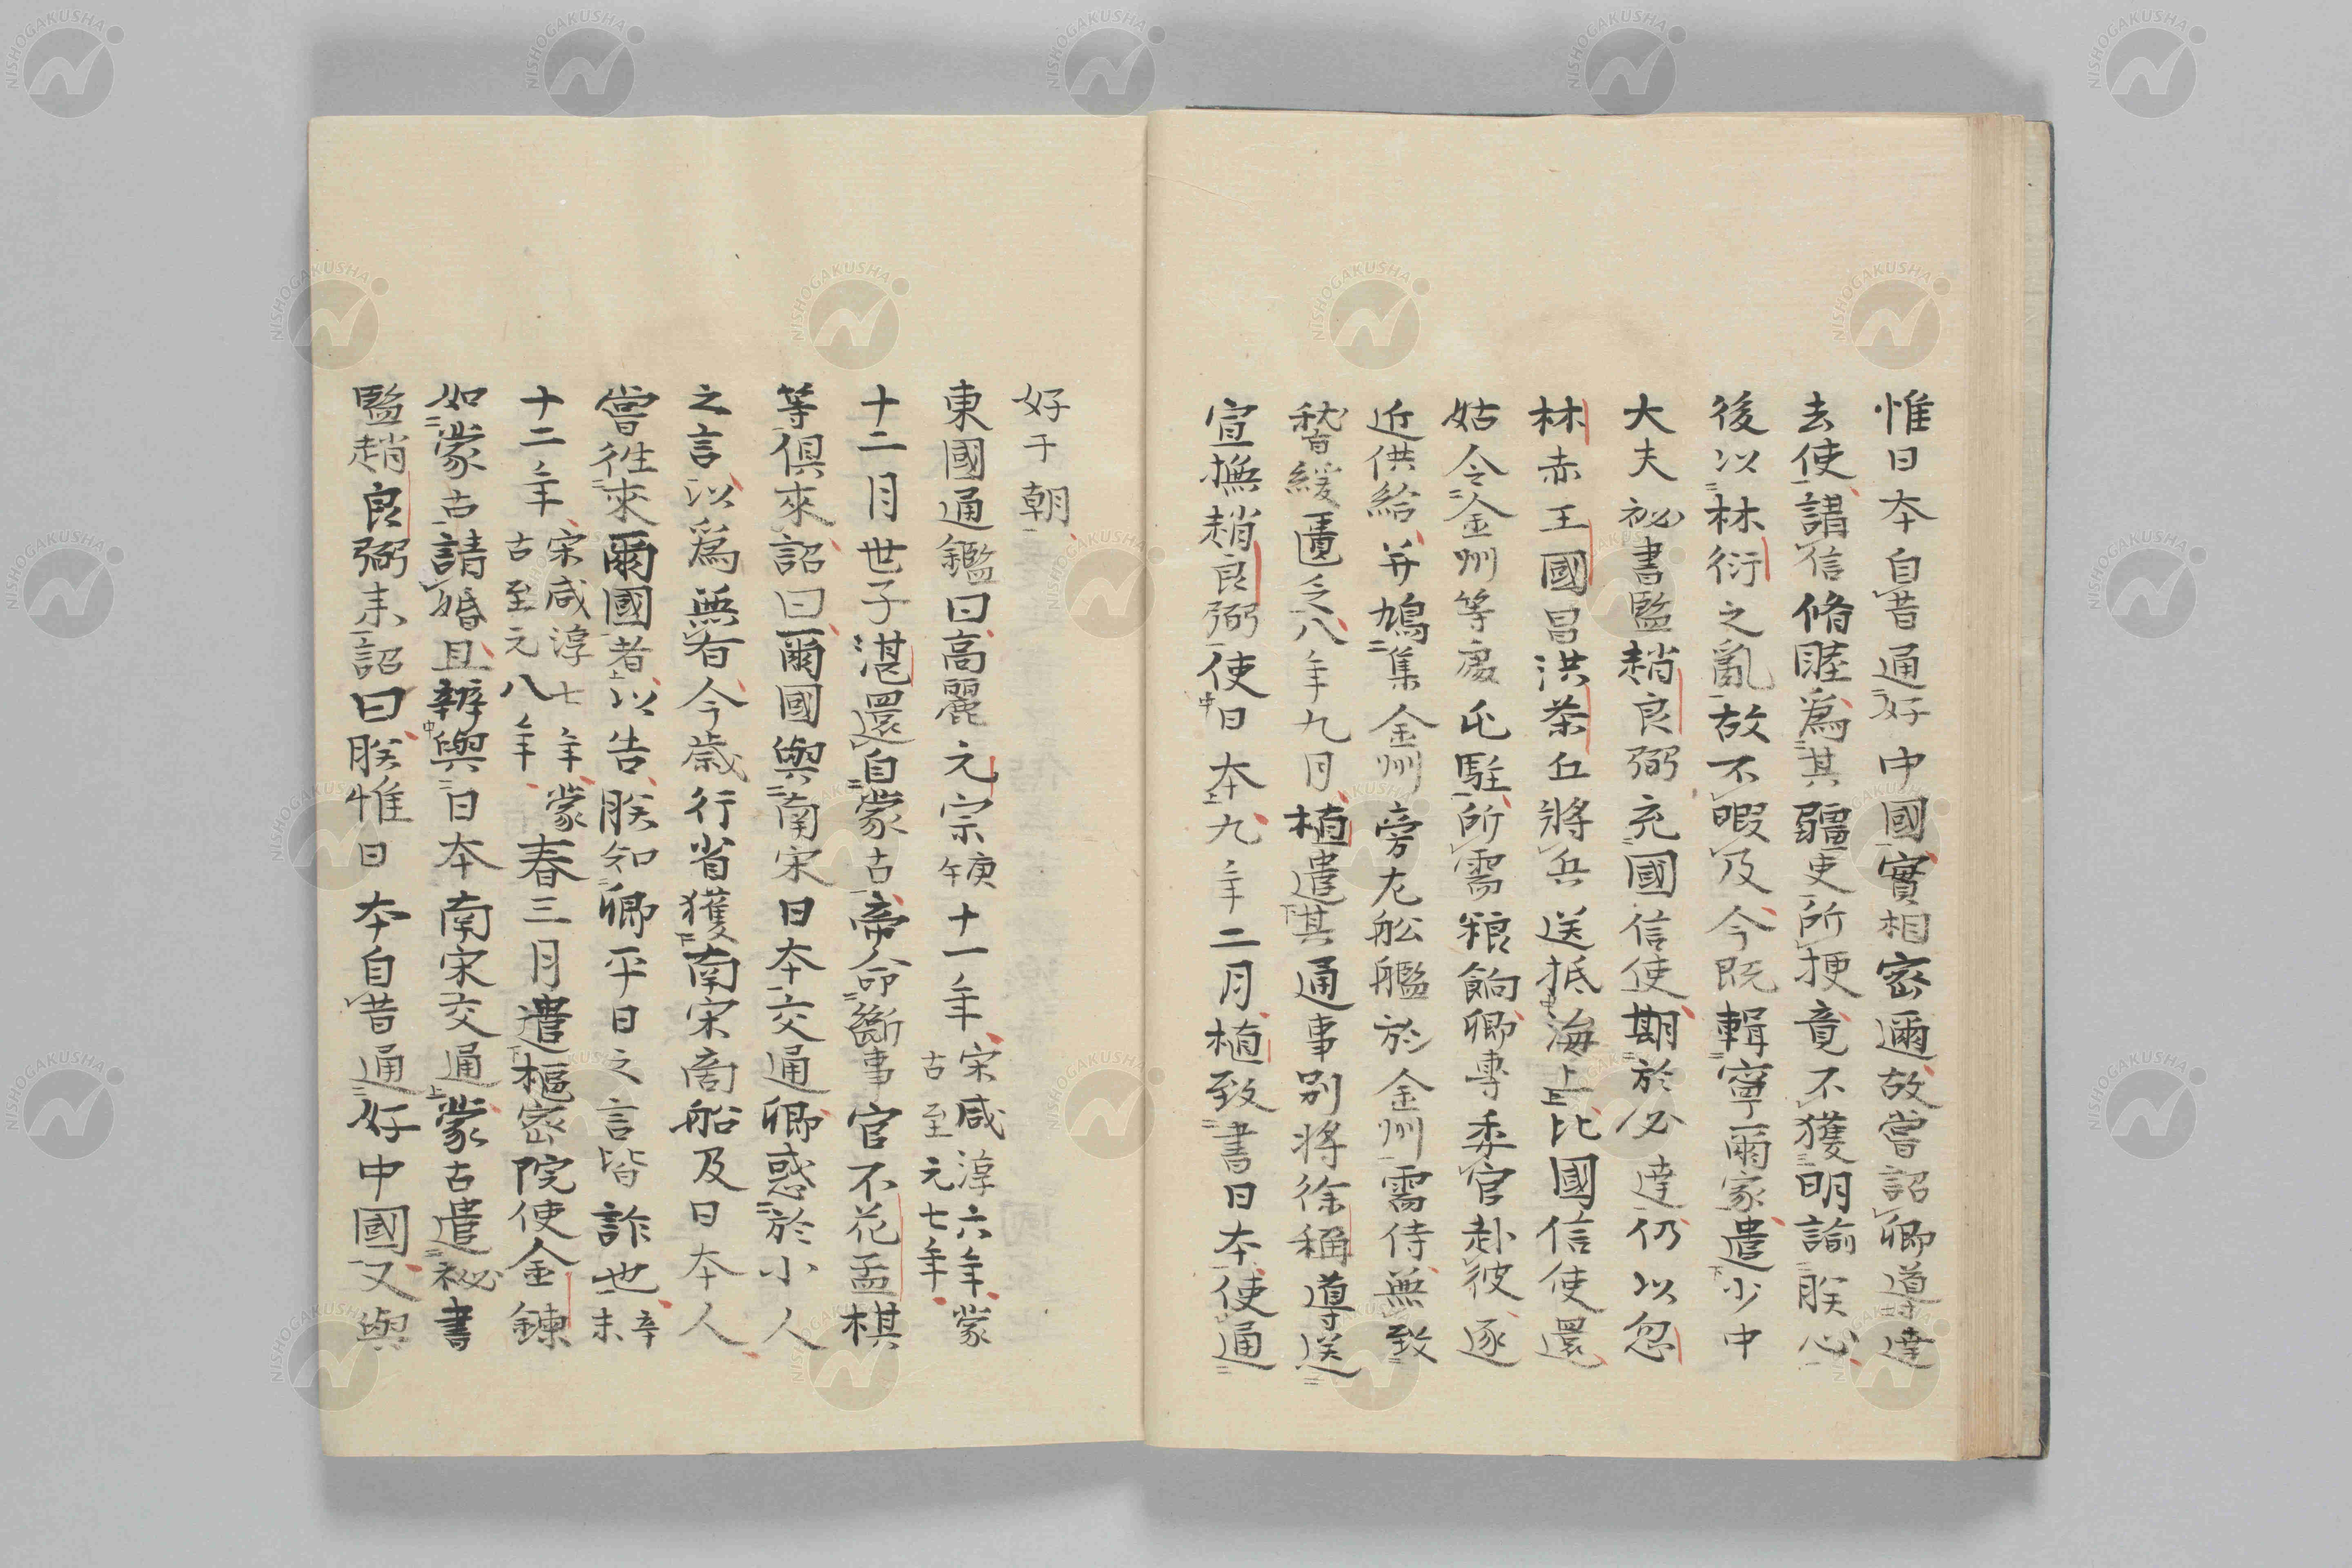 惟日本自昔通好中國實相密邇故嘗詔卿導達
去使講信脩睦爲其疆吏所梗竟不獲明諭朕心
後以林衍之亂故不暇及今既輯寧爾家遣少中
大夫祕書監趙良弼充國信使期於必達仍以忽
林赤王國昌洪茶丘將兵送抵海上比國信使還
姑令金州等處屯駐所需粮餉卿專委官赴彼逐
近供給并鳩集金州旁左舩艦於金州需待無致
稽緩匱乏八年九月植遣其通事別將徐稱導送
宣撫趙良弼使日本九年二月植致書日本使通
好于朝
東國通鑑曰高麗元宗庚午十一年宋咸淳六年蒙古至元七年
十二月世子湛還自蒙古帝命斷事官不花孟棋
等俱來詔曰爾國與南宋日本交通卿惑於小人
之言以爲無有今歲行省獲南宋商船及日本人
嘗徃來爾國者以告朕知卿平日之言皆詐也辛未
十二年宋咸淳七年蒙古至元八年春三月遣樞密院使金鍊
如蒙古請婚且辨與日本南宋交通蒙古遣祕書
監趙良弼来詔曰朕惟日本自昔通好中國又與
NISHOGAKUSHA